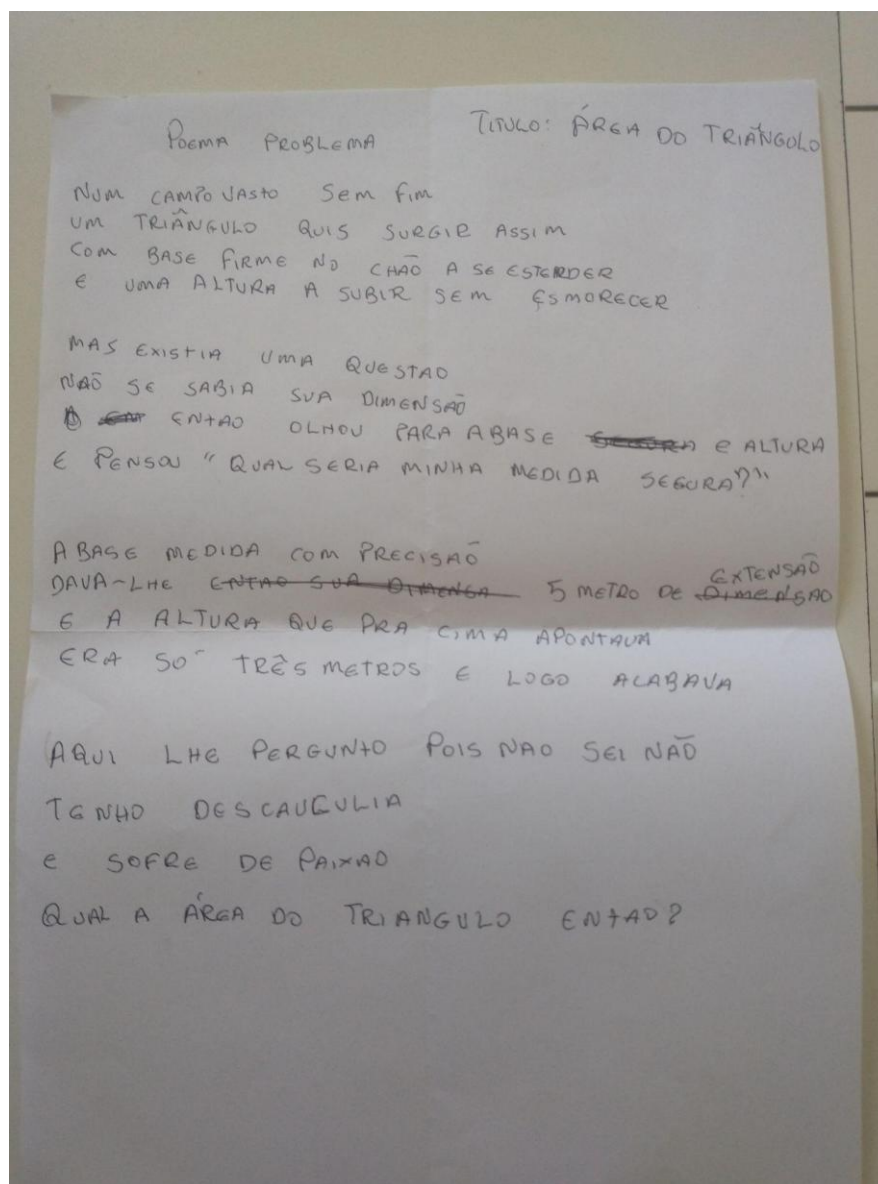 POEMA PROBLEMA
TITULO: ÁREA DO TRIÂNGOLO
NUM CAMPO VASTO SEM FIM
UM TRIÂNGULO QUIS SURGIR ASSIM
COM BASE FIRME NO CHÃO A SE ESTERDER
E UMA ALTURA A SUBIR SEM ESMORECER
MAS EXISTIA UMA QUESTAO
NAÕ SE SABIA SUA DIMENSAÕ
ENTAO OLHOU PARA A BASE E ALTURA
E PENSOU "QUAL SERIA MINHA MEDIDA SEGURA?"
A BASE MEDIDA COM PRECISAÕ
DAVA-LHE ENTAO SUA DIMENSA 5 METRO DE DIMENSAO EXTENSAÕ
E A ALTURA QUE PRA CIMA APONTAVA
ERA SO´ TRÊS METROS E LOGO ACABAVA
AQUI LHE PERGUNTO POIS NAO SEI NAÕ
TENHO DESCAUCULIA
E SOFRE DE PAIXAO
QUAL A ÁREA DO TRIANGULO ENTAO?